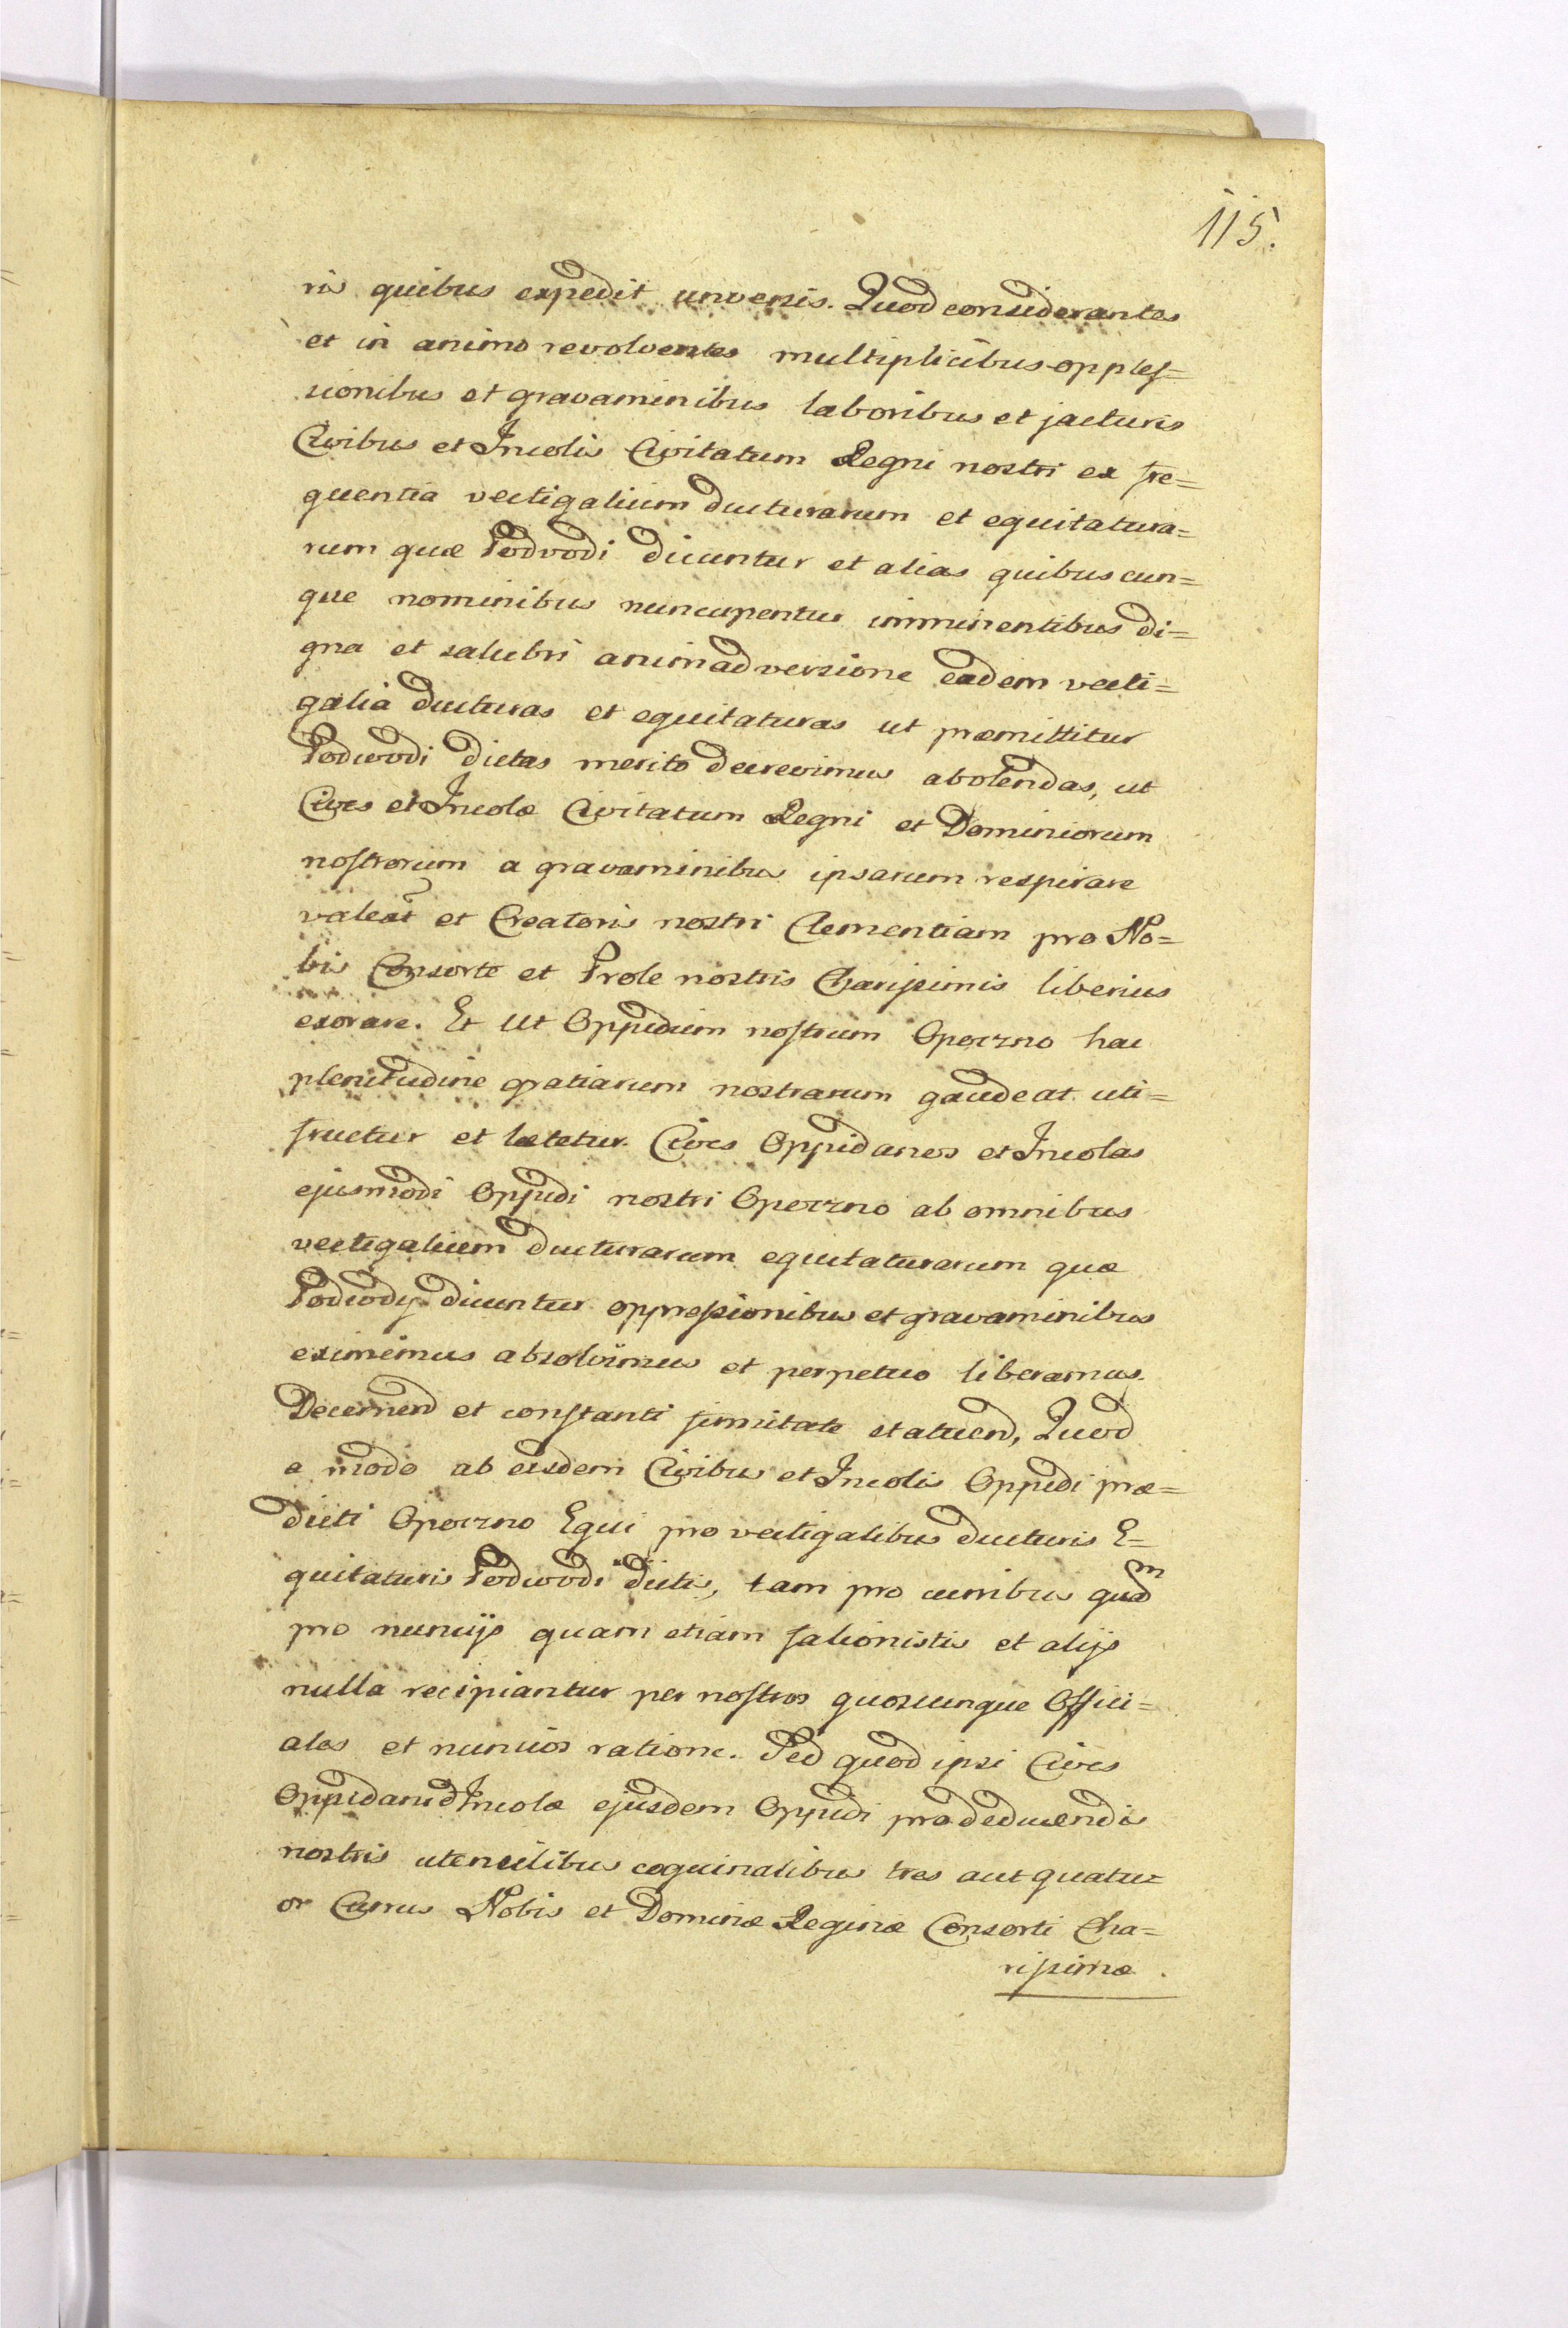 115.
ris quibus expedit universis. Quod considerantes
et in animo revolventes multiplicibus oppres=
sionibus et gravaminibus laboribus et jacturis
Civibus et Incolis Civitatum Regni nostri ex fre=
quentia vectigalium ducturarum et equitatura=
rum quæ Podvodi dicuntur et alias quibuscun=
que nominibus nuncupentur imminentibus di=
gna et salubri animadversione eadem vecti=
galia ducturas et equitaturas ut præmittitur
Podwodi dictas merito decrevimus abolendas, ut
Cives et Incolæ Civitatum Regni et Dominiorum
nostrorum a gravaminibus ipsarum respirare
valeāt et Creatoris nostri Clementiam pro No=
bis Consorte et Prole nostris Charissimis liberius
exorare. Et Ut Oppidum nostrum Opoczno hac
plenitudine gratiarum nostrarum gaudeat uti=
fructur et lætetur. Cives Oppidanos et Incolas
ejusmodi Oppidi nostri Opoczno ab omnibus
vectigalium ducturarum equitaturarum quæ
Podwody dicuntur oppressionibus et gravaminibus
eximimus absolvimus et perpetuo liberamus.
Decernend et constanti firmitate statuend, Quod
a modo ab eisdem Civibus et Incolis Oppidi præ=
dicti Opoczno Equi pro vectigalibus ducturis E=
quitaturis Podwodi dictis, tam pro curribus quam
pro nuncijs quam etiam falionistis et alijs
nulla recipiantur per nostros quoscunque Offici=
ales et nuncios ratione. Sed quod ipsi Cives
Oppidani d Incolæ ejusdem Oppidi pro deducendis
nostris utencilibus coquinalibus tres aut quatu=
or Currus Nobis et Dominæ Reginæ Consorti Cha=
rissimæ.